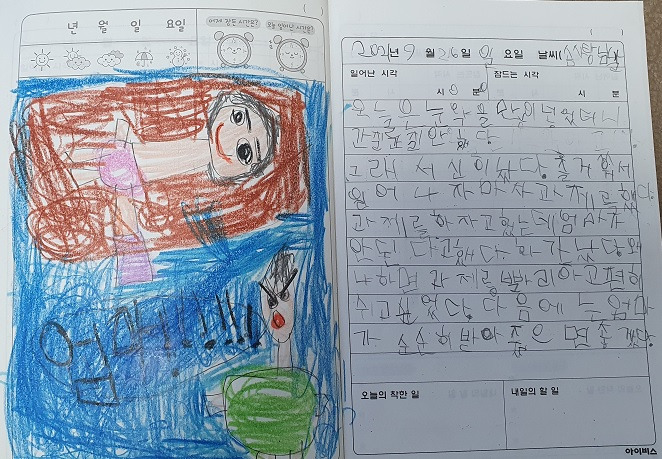 년 월 일 요일
어제 잠든 시간은? 오늘 일어난 시간은?
엄마!!!!!
2021년 9 월 26 일 일 요일 날씨(
일어난 시각 잠드는 시각
시 분 시 분
오늘 안약을 많이 넣었더니
간질간질 안 했다.
그래서 신이 났다. 즐거워서
일어나자마자 과제를 했다.
과제를 하자고 했는데 엄마가
안 된다고 했다. 화가 났다. 왜
냐하면 과제를 빨리하고 편히
쉬고 싶었다. 다음에는 엄마
가 순순히 받아주으면 좋겠다.
오늘의 착한 일 내일의 할 일
아이비스